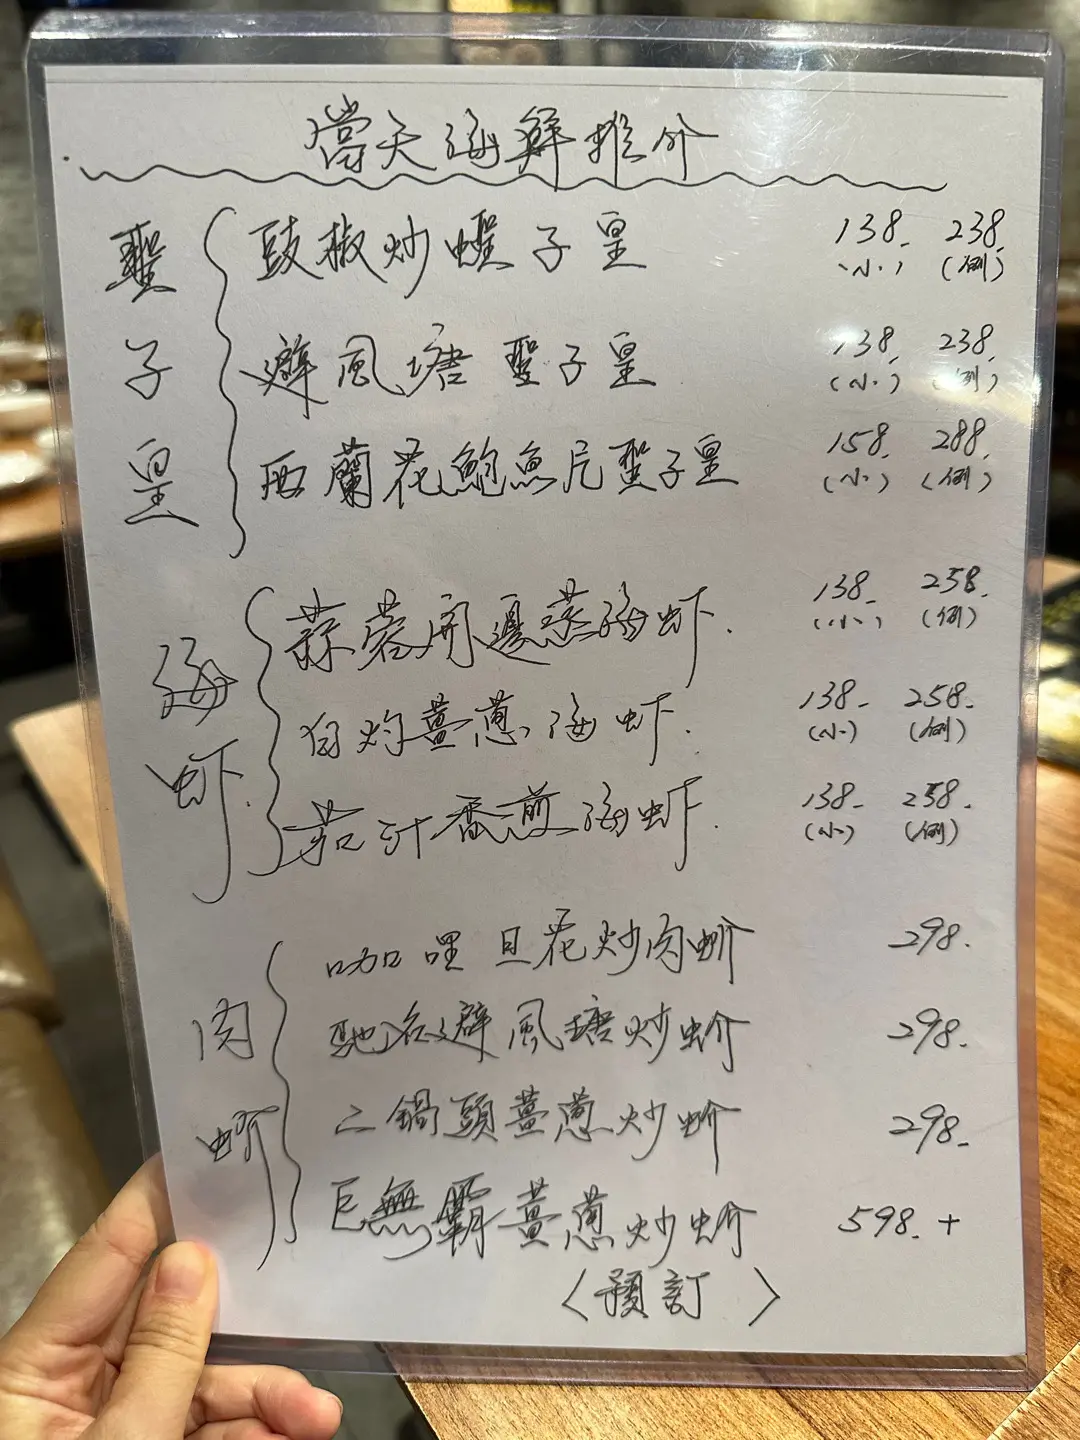 當天海鮮推介
聖子皇
豉椒炒蟶子皇 138. 238.
(小) (例)
避風塘聖子皇 138. 238.
(小) (例)
西蘭花鮑魚片聖子皇 158. 288.
(小) (例)
海虾
蒜蓉開邊蒸海虾. 138. 258.
(小) (例)
白灼薑蔥海虾. 138. 258.
(小) (例)
茄汁香煎海虾. 138. 258.
(小) (例)
肉蚧
咖哩旦花炒肉蚧 298.
馳名避風塘炒蚧 298.
二鍋頭薑蔥炒蚧 298.
巨無霸薑蔥炒蚧 598.+
〈預訂〉